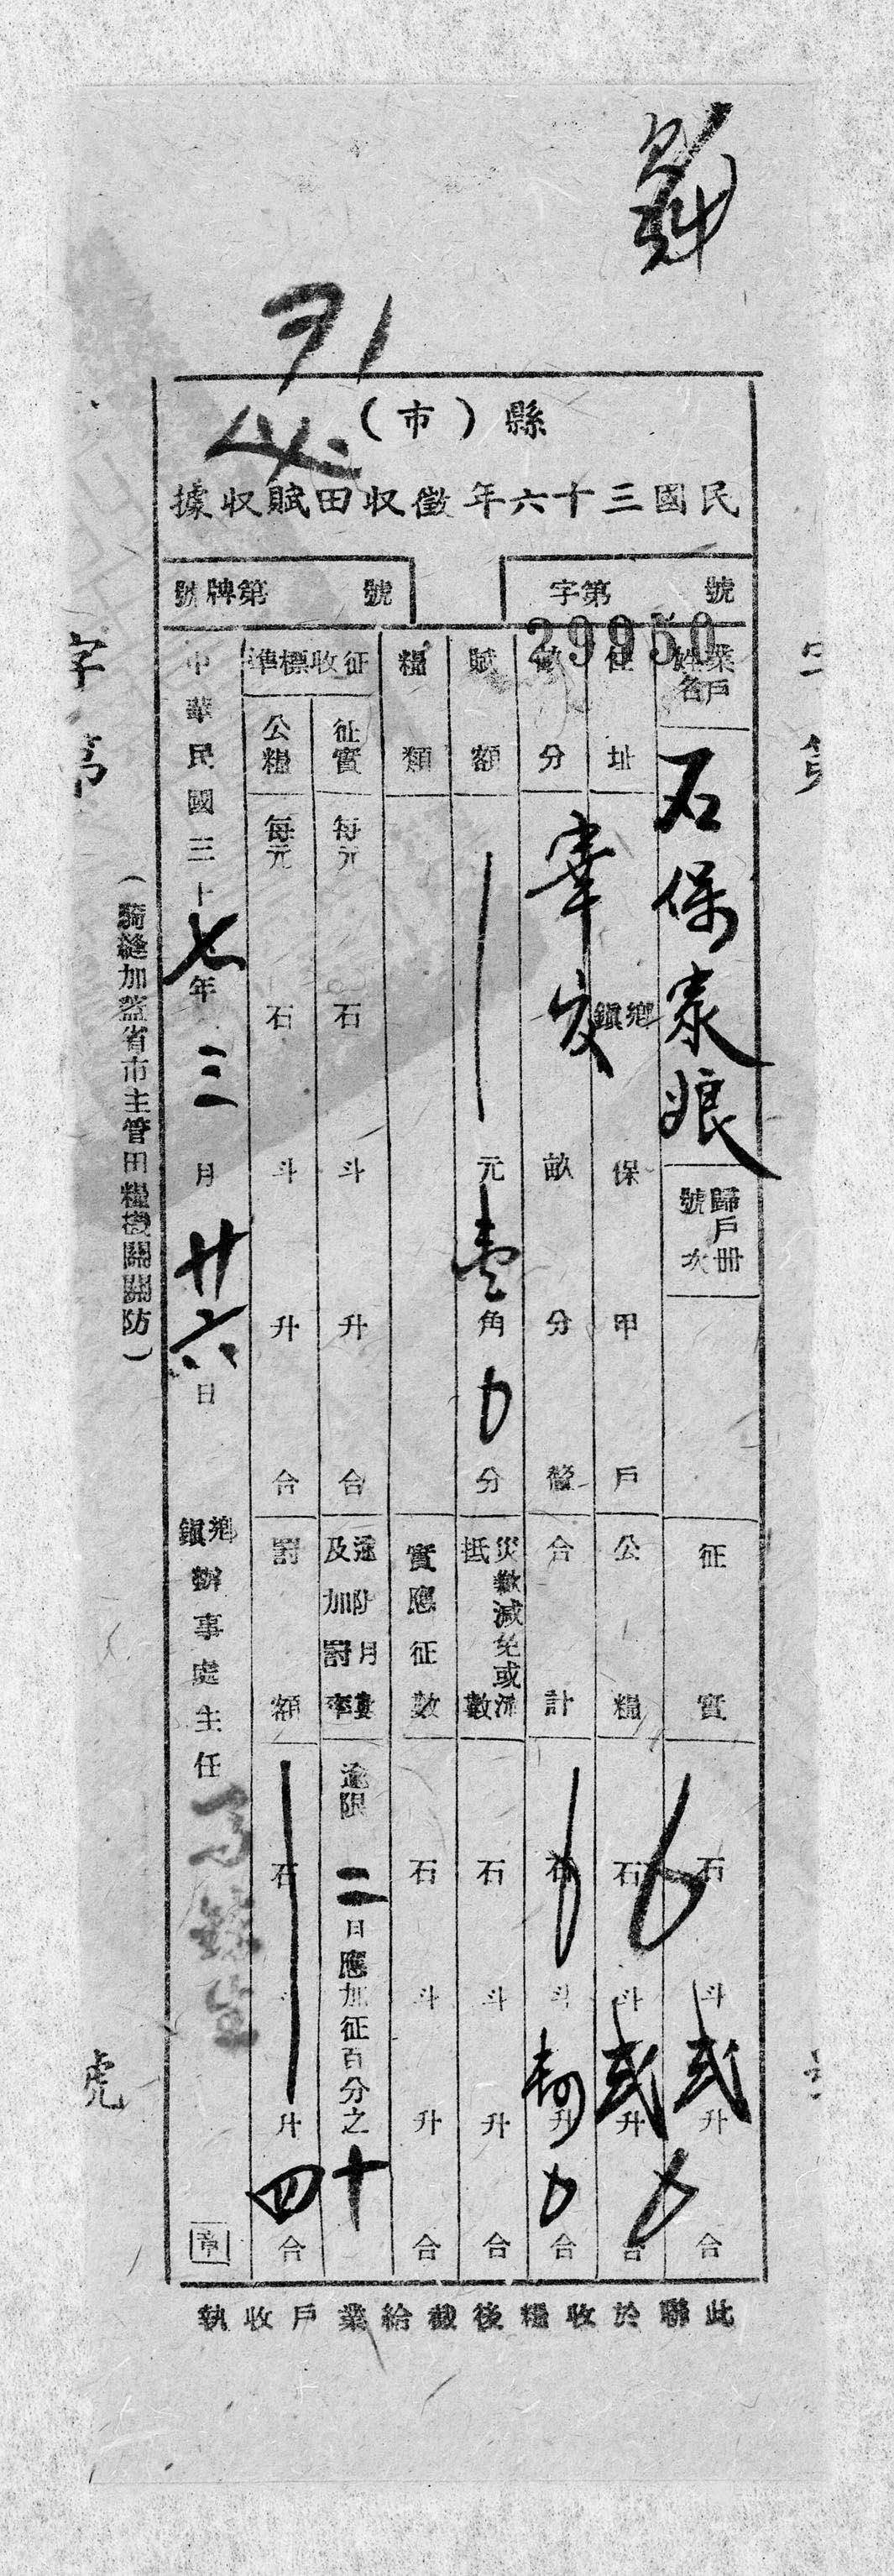 縣（市）
民國三十六年徵收田賦收據
字第 號
29950
號牌第 號
業戶姓名 石保泰娘
歸戶冊號次
征實 石 斗 弍 升 合
住址 鄉鎮 保 甲 戶
公糧 石 斗 弍 升 合
畝分 畝 分 釐
合計 石 斗 升 合
賦額 元 壹 角 分
災歉減免或 抵 數 石 斗 升 合
糧類
實應征數 石 斗 升 合
征收標準
征實 每元 石 斗 升 合
公糧 每元 石 斗 升 合
逾限 二 日應加征百分之 十
罰額 石 升 四 合
中華民國三十七年三月廿六日
鄉鎮辦事處主任
（騎縫加蓋省市主管田糧機關關防）
字第
號
此聯於收糧後截給業戶收執